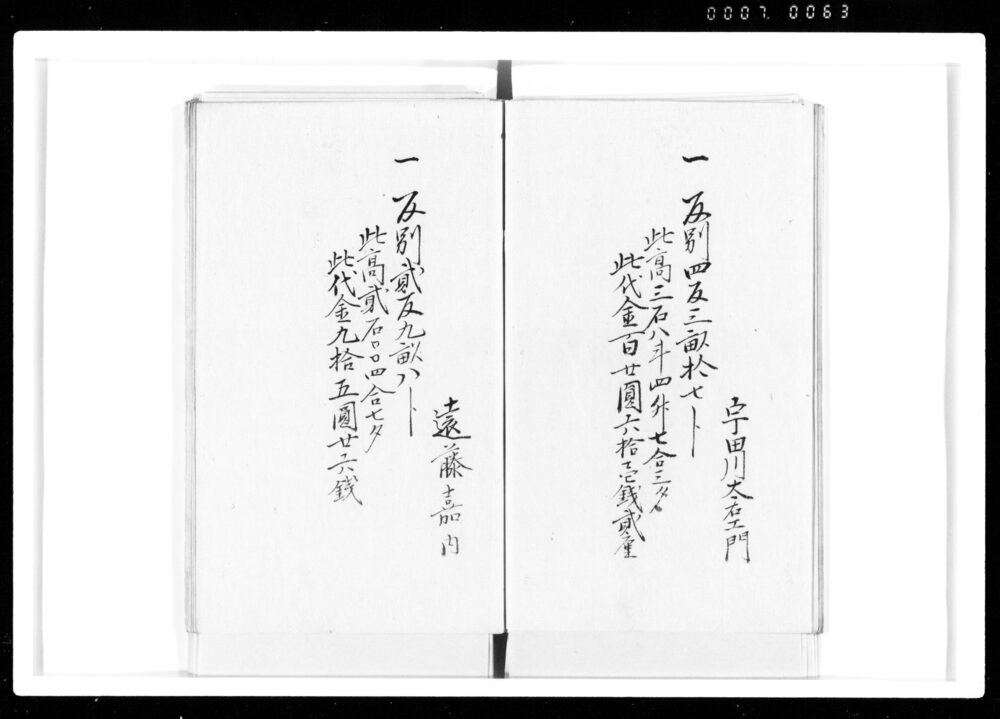 0007. 0063
宇田川太右エ門
一 反別四反三畝拾七ト
此高三石八斗四升七合三夕
此代金百廿圓六拾壱銭貳厘
遠藤嘉内
一 反別貳反九畝八ト
此高貳石〇〇四合七夕
此代金九拾五圓廿六銭